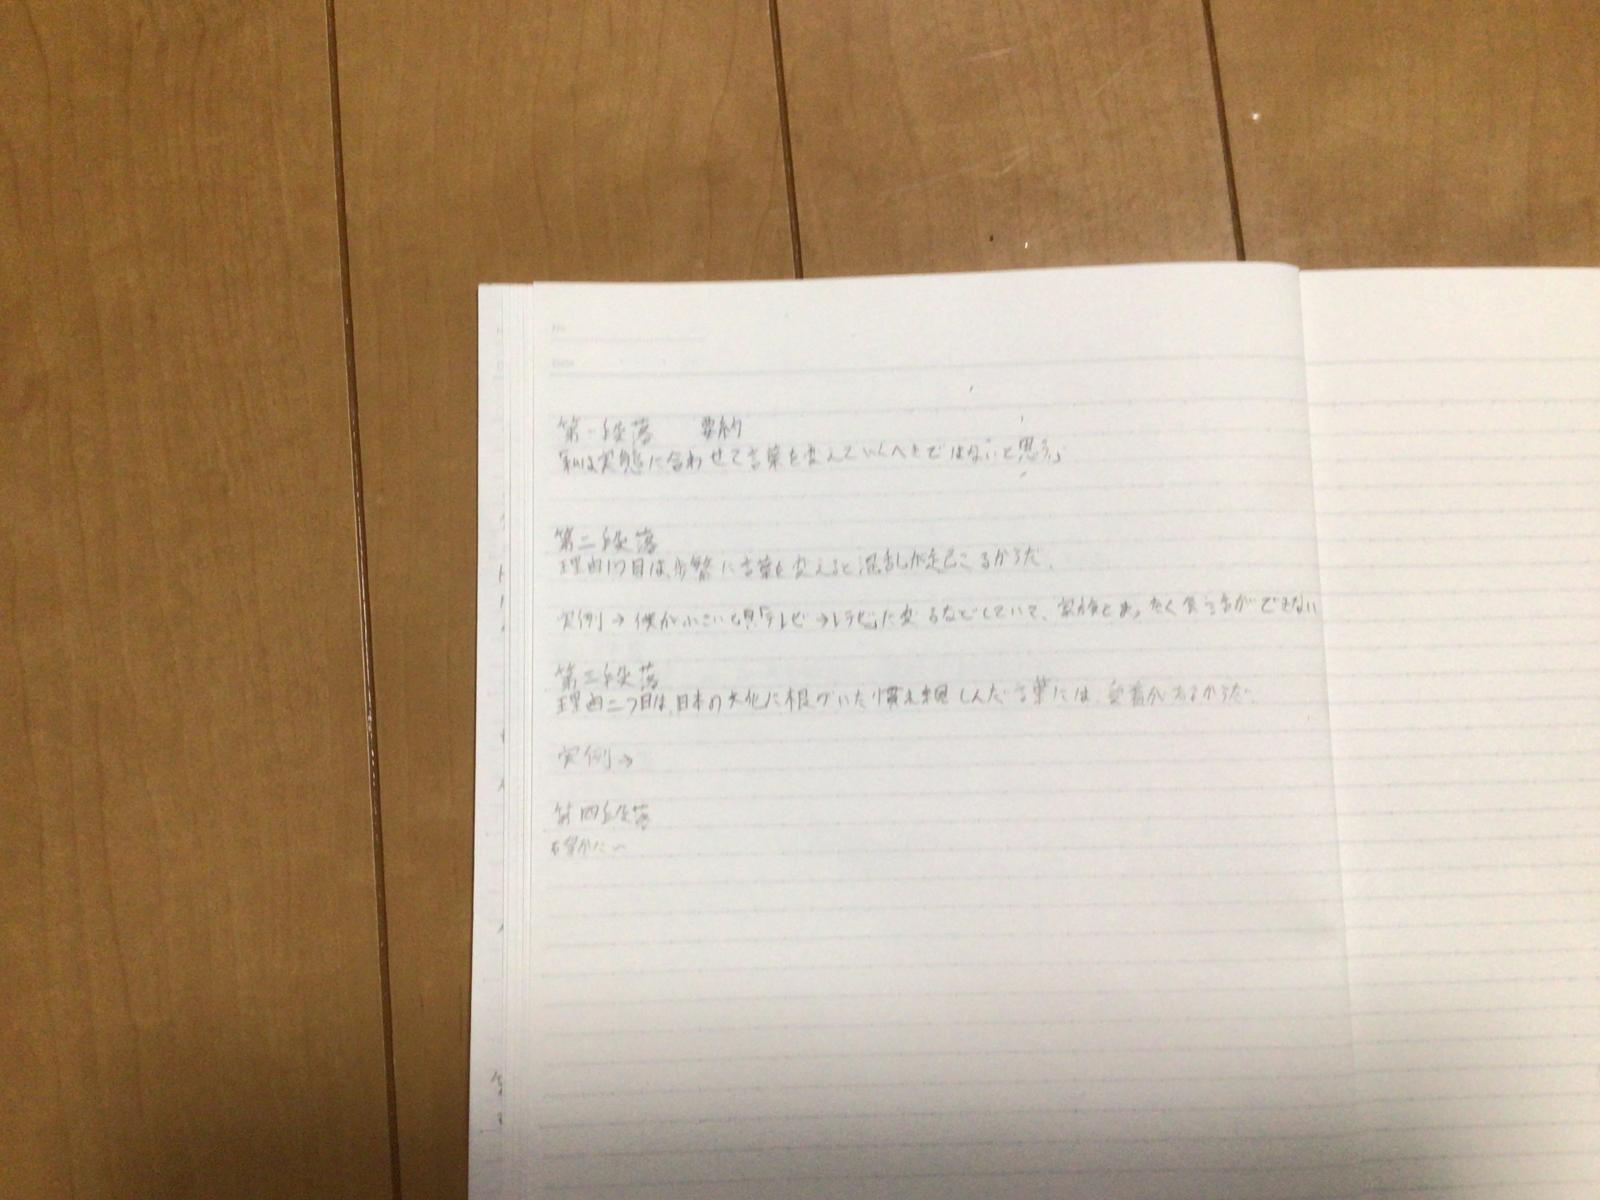 No.
Date
第一段落 要約
私は実態に合わせて言葉を変えていくべきではないと思う。
第二段落
理由1つ目は、頻繁に言葉を変えると混乱が起こるからだ。
実例→僕が小さい頃「テレビ→レテビ」に変えるなどしていて、家族とまったく会話ができない
第三段落
理由二つ目は、日本の文化に根づいた慣れ親しんだ言葉には、愛着があるからだ。
実例→
第四段落